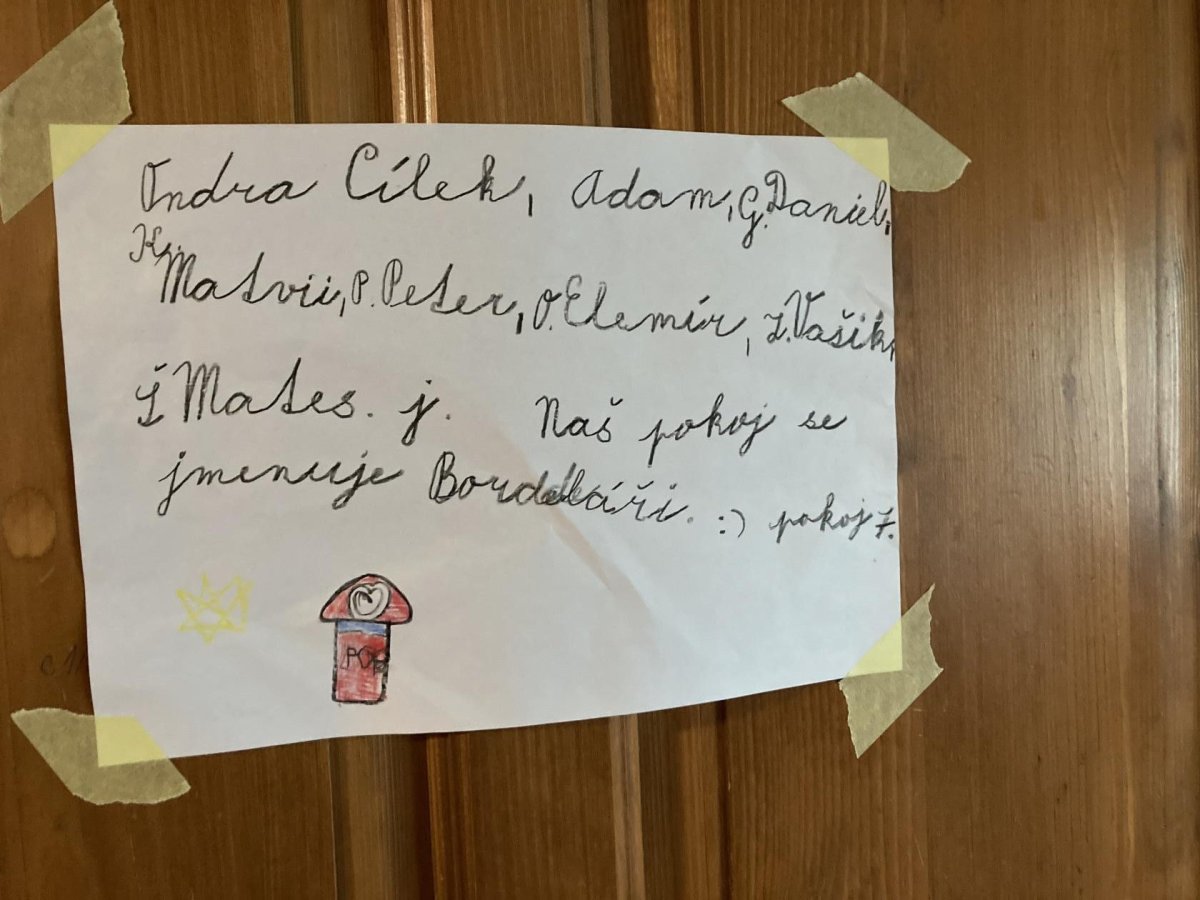 Ondra Cílek, Adam, G. Daniel,
K. Matvii, P. Peter, O. Elemír, Z. Vašik,
Š Mates. j. Naš pokoj se
jmenuje Bordeláři. :) pokoj 7.